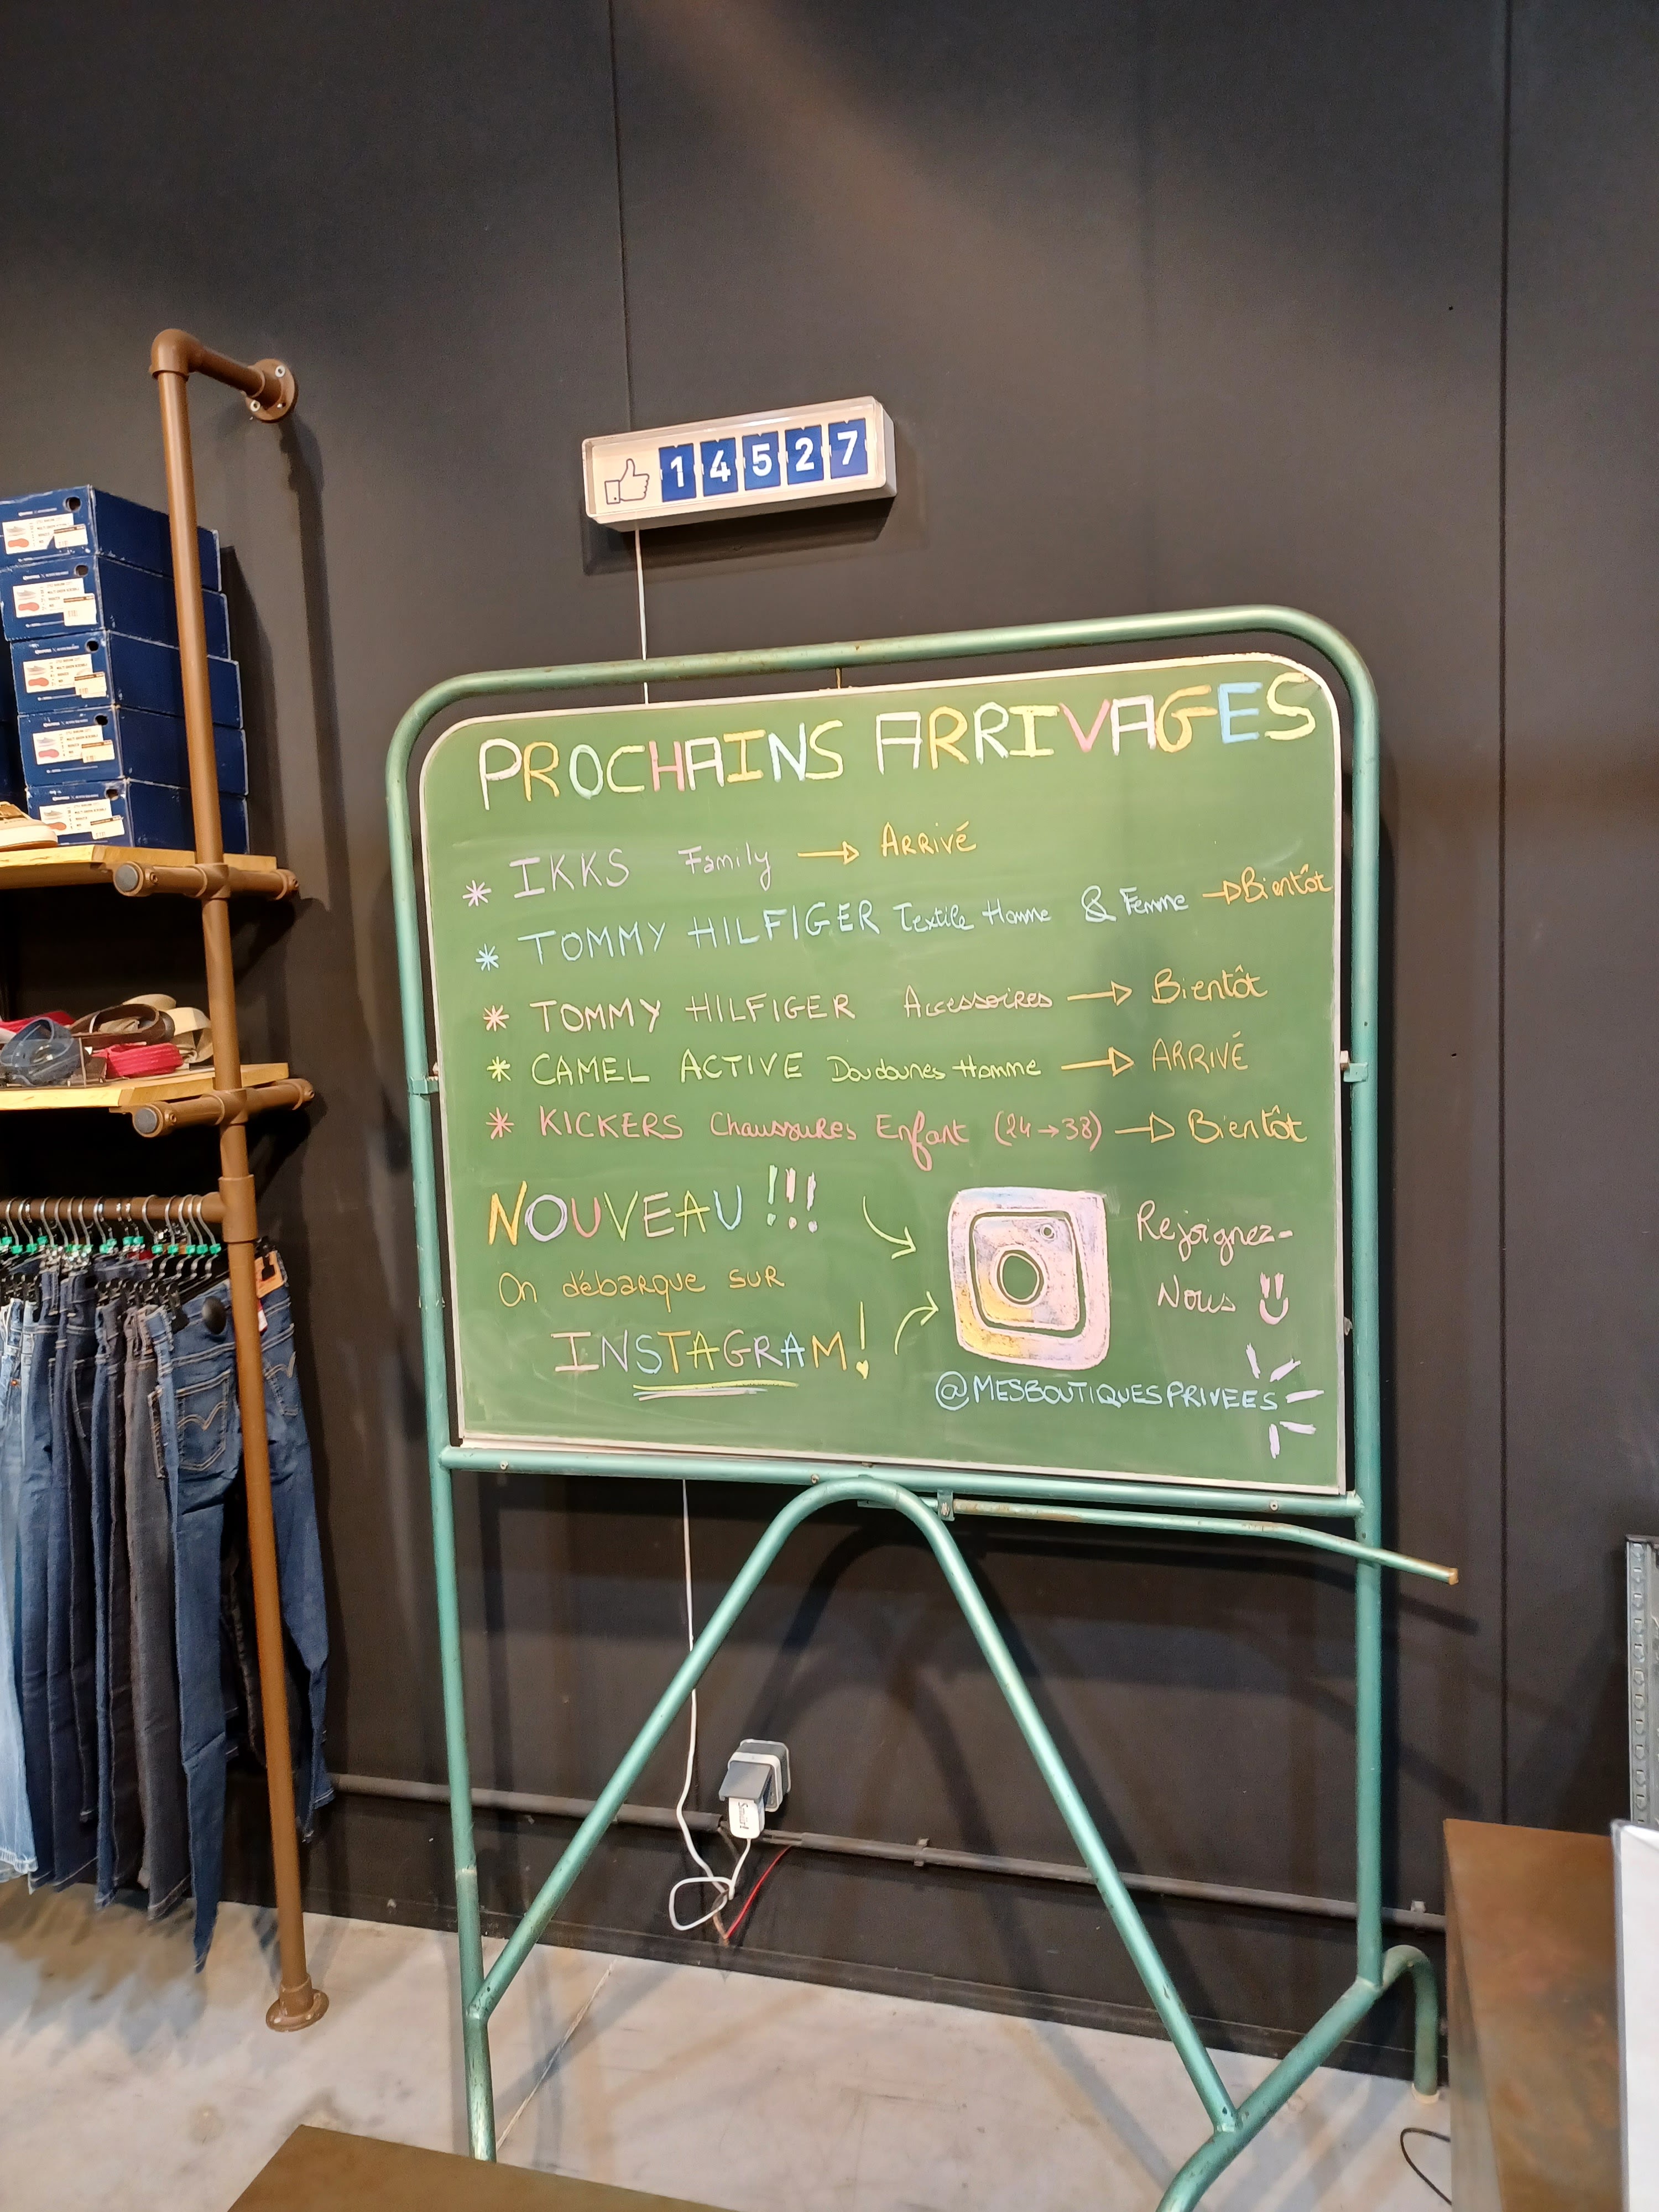 14527
PROCHAINS ARRIVAGES
* IKKS Family → ARRIVÉ
* TOMMY HILFIGER Textile Homme & Femme → Bientôt
* TOMMY HILFIGER Accessoires → Bientôt
* CAMEL ACTIVE Doudounes Homme → ARRIVÉ
* KICKERS Chaussures Enfant (24→38) → Bientôt
NOUVEAU !!!
On débarque sur
INSTAGRAM !
Rejoignez-
Nous
@MESBOUTIQUESPRIVEES